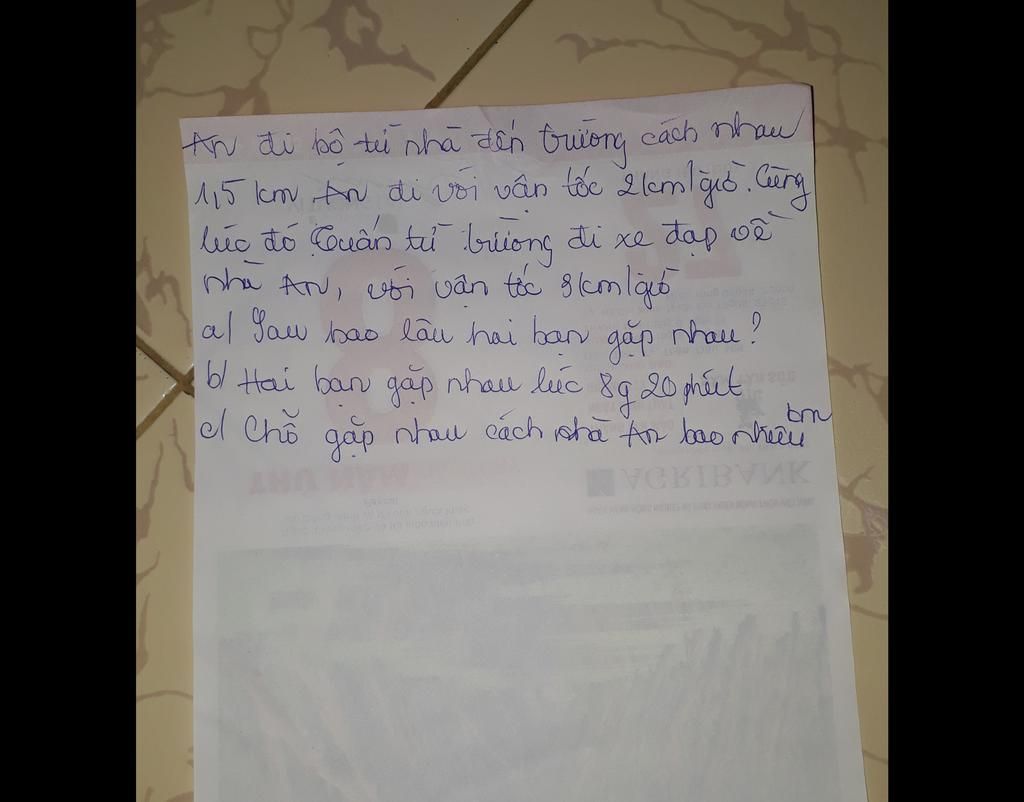 An đi bộ từ nhà đến trường cách nhau
1,5 km An đi với vận tốc 2km/giờ. Cùng
lúc đó Tuấn từ trường đi xe đạp về
nhà An, với vận tốc 8km/giờ
a/ Sau bao lâu hai bạn gặp nhau?
b/ Hai bạn gặp nhau lúc 8g 20 phút
c/ Chỗ gặp nhau cách nhà An bao nhiêu km
AGRIBANK